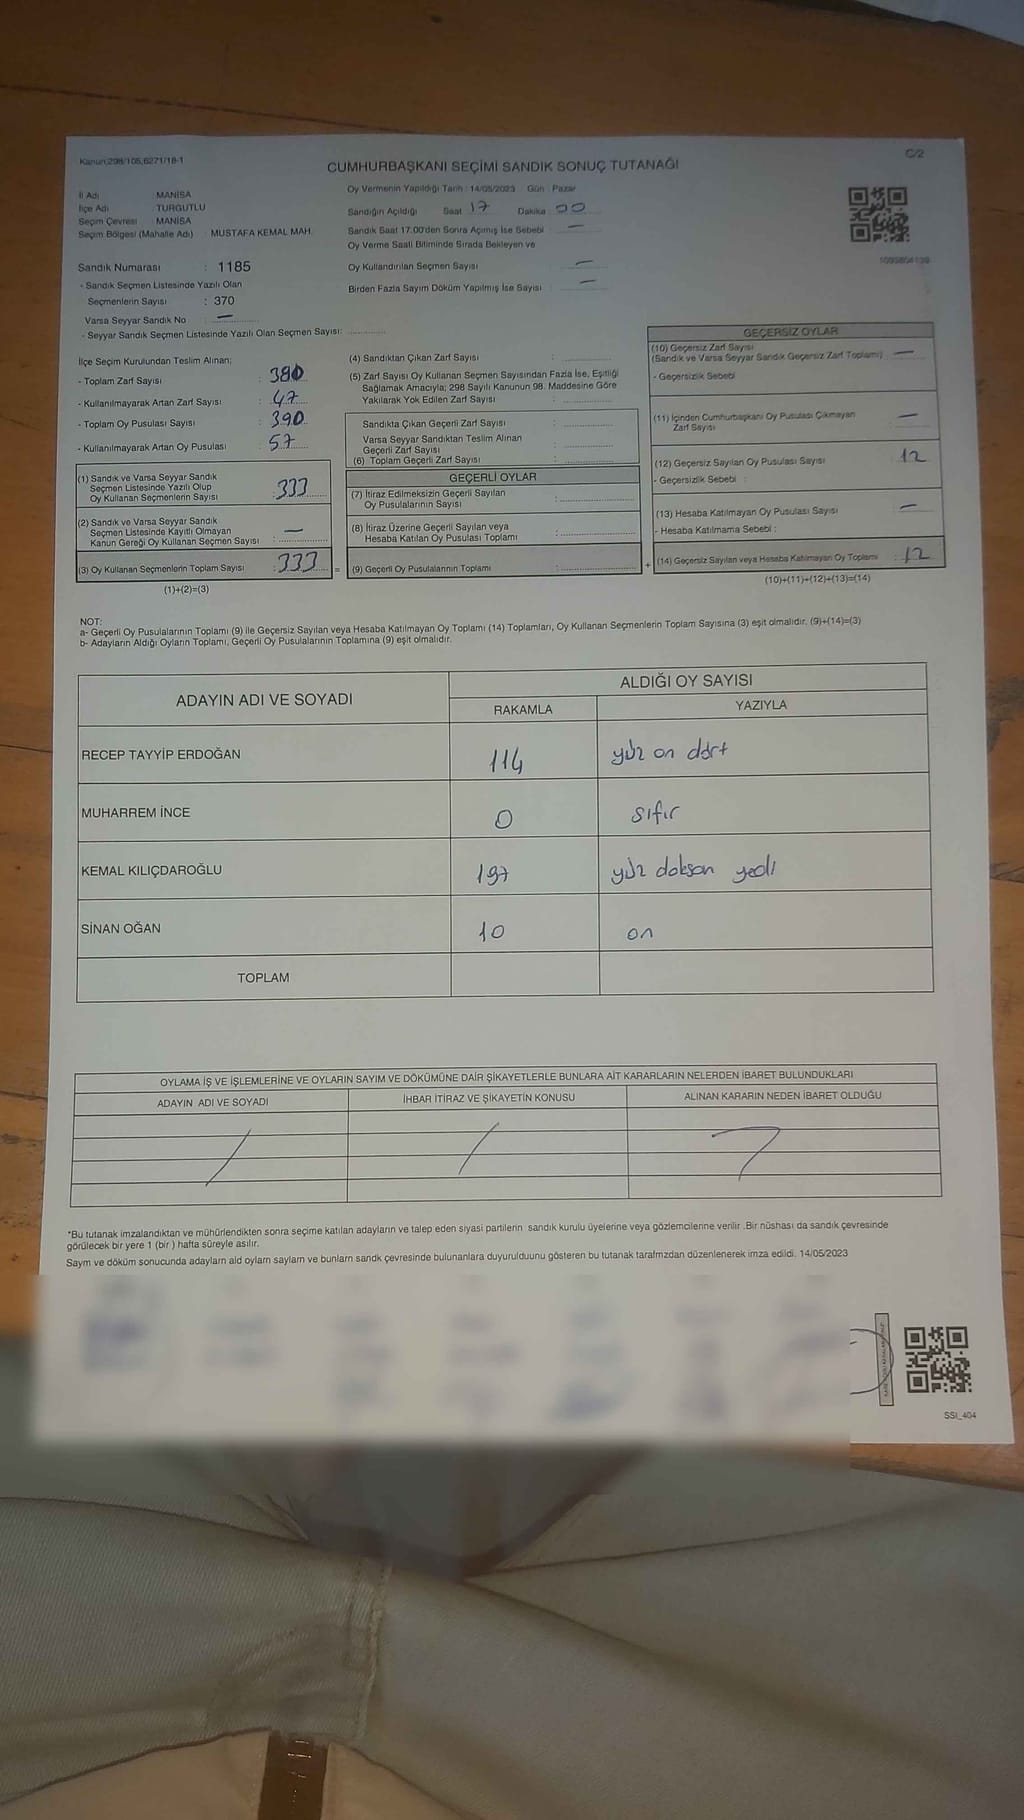 Kanun:298/105,6271/18-1
C/2
CUMHURBAŞKANI SEÇİMİ SANDIK SONUÇ TUTANAĞI
İl Adı MANİSA
İlçe Adı TURGUTLU
Seçim Çevresi MANİSA
Seçim Bölgesi (Mahalle Adı) : MUSTAFA KEMAL MAH.
Oy Vermenin Yapıldığı Tarih : 14/05/2023 Gün : Pazar
Sandığın Açıldığı Saat 17 Dakika 00
Sandık Saat 17.00'den Sonra Açılmış İse Sebebi : —
Oy Verme Saati Bitiminde Sırada Bekleyen ve
Oy Kullandırılan Seçmen Sayısı : —
Birden Fazla Sayım Döküm Yapılmış İse Sayısı : —
Sandık Numarası : 1185
- Sandık Seçmen Listesinde Yazılı Olan
Seçmenlerin Sayısı : 370
Varsa Seyyar Sandık No : —
- Seyyar Sandık Seçmen Listesinde Yazılı Olan Seçmen Sayısı:
İlçe Seçim Kurulundan Teslim Alınan;
- Toplam Zarf Sayısı : 380
- Kullanılmayarak Artan Zarf Sayısı : 47
- Toplam Oy Pusulası Sayısı : 390
- Kullanılmayarak Artan Oy Pusulası : 57
(1) Sandık ve Varsa Seyyar Sandık
Seçmen Listesinde Yazılı Olup
Oy Kullanan Seçmenlerin Sayısı : 333
(2) Sandık ve Varsa Seyyar Sandık
Seçmen Listesinde Kayıtlı Olmayan
Kanun Gereği Oy Kullanan Seçmen Sayısı : —
(3) Oy Kullanan Seçmenlerin Toplam Sayısı : 333 =
(1)+(2)=(3)
(4) Sandıktan Çıkan Zarf Sayısı :
(5) Zarf Sayısı Oy Kullanan Seçmen Sayısından Fazla İse, Eşitliği
Sağlamak Amacıyla; 298 Sayılı Kanunun 98. Maddesine Göre
Yakılarak Yok Edilen Zarf Sayısı :
Sandıkta Çıkan Geçerli Zarf Sayısı :
Varsa Seyyar Sandıktan Teslim Alınan
Geçerli Zarf Sayısı :
(6) Toplam Geçerli Zarf Sayısı :
GEÇERLİ OYLAR
(7) İtiraz Edilmeksizin Geçerli Sayılan
Oy Pusulalarının Sayısı :
(8) İtiraz Üzerine Geçerli Sayılan veya
Hesaba Katılan Oy Pusulası Toplamı :
(9) Geçerli Oy Pusulalarının Toplamı : +
GEÇERSİZ OYLAR
(10) Geçersiz Zarf Sayısı
(Sandık ve Varsa Seyyar Sandık Geçersiz Zarf Toplamı) —
- Geçersizlik Sebebi
(11) İçinden Cumhurbaşkanı Oy Pusulası Çıkmayan
Zarf Sayısı : —
(12) Geçersiz Sayılan Oy Pusulası Sayısı 12
- Geçersizlik Sebebi :
(13) Hesaba Katılmayan Oy Pusulası Sayısı —
- Hesaba Katılmama Sebebi :
(14) Geçersiz Sayılan veya Hesaba Katılmayan Oy Toplamı : 12
(10)+(11)+(12)+(13)=(14)
NOT:
a- Geçerli Oy Pusulalarının Toplamı (9) ile Geçersiz Sayılan veya Hesaba Katılmayan Oy Toplamı (14) Toplamları, Oy Kullanan Seçmenlerin Toplam Sayısına (3) eşit olmalıdır. (9)+(14)=(3)
b- Adayların Aldığı Oyların Toplamı, Geçerli Oy Pusulalarının Toplamına (9) eşit olmalıdır.
ADAYIN ADI VE SOYADI
ALDIĞI OY SAYISI
RAKAMLA YAZIYLA
RECEP TAYYİP ERDOĞAN 114 yüz on dört
MUHARREM İNCE 0 sıfır
KEMAL KILIÇDAROĞLU 197 yüz doksan yedi
SİNAN OĞAN 10 on
TOPLAM
OYLAMA İŞ VE İŞLEMLERİNE VE OYLARIN SAYIM VE DÖKÜMÜNE DAİR ŞİKAYETLERLE BUNLARA AİT KARARLARIN NELERDEN İBARET BULUNDUKLARI
ADAYIN ADI VE SOYADI İHBAR İTİRAZ VE ŞİKAYETİN KONUSU ALINAN KARARIN NEDEN İBARET OLDUĞU
*Bu tutanak imzalandıktan ve mühürlendikten sonra seçime katılan adayların ve talep eden siyasi partilerin sandık kurulu üyelerine veya gözlemcilerine verilir .Bir nüshası da sandık çevresinde
görülecek bir yere 1 (bir ) hafta süreyle asılır.
Saym ve döküm sonucunda adaylarn ald oylarn saylarn ve bunlarn sandk çevresinde bulunanlara duyurulduunu gösteren bu tutanak tarafmzdan düzenlenerek imza edildi. 14/05/2023
SSI_404